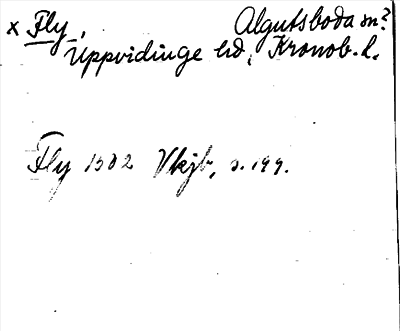 x Fly, Algutsboda sn?
Uppvidinge hd, Kronob. l.
Fly 1502 Vkjb, s. 199.